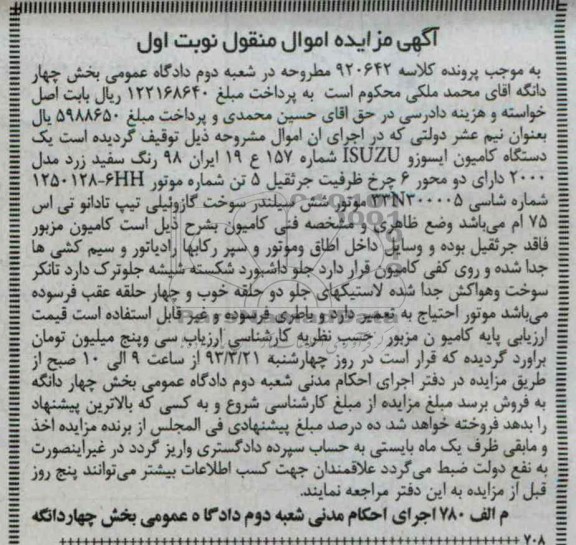 آگهی مزایده اموال منقول نوبت اول
به موجب پرونده کلاسه ۹۲۰۶۴۲ مطروحه در شعبه دوم دادگاه عمومی بخش چهار
دانگه اقای محمد ملکی محکوم است به پرداخت مبلغ ۱۲۲۱۶۸۶۴۰ ریال بابت اصل
خواسته و هزینه دادرسی در حق اقای حسین محمدی و پرداخت مبلغ ۵۹۸۸۶۵۰ یال
بعنوان نیم عشر دولتی که در اجرای ان اموال مشروحه ذیل توقیف گردیده است یک
دستگاه کامیون ایسوزو ISUZU شماره ۱۵۷ ع ۱۹ ایران ۹۸ رنگ سفید زرد مدل
۲۰۰۰ دارای دو محور ۶ چرخ ظرفیت جرثقیل ۵ تن شماره موتور ۶HH-۱۲۵۰۱۲۸
شماره شاسی ۲۳N۳۰۰۰۰۵ موتور شش سیلندر سوخت گازوئیلی تیپ تادانو تی اس
۷۵ ام می‌باشد وضع ظاهری و مشخصه فنی کامیون بشرح ذیل است کامیون مزبور
فاقد جرثقیل بوده و وسایل داخل اطاق وموتور و سپر رکابها رادیاتور و سیم کشی ها
جدا شده و روی کفی کامیون قرار دارد جلو داشبورد شکسته شیشه جلوترک دارد تانکر
سوخت وهواکش جدا شده لاستیکهای جلو دو حلقه خوب و چهار حلقه عقب فرسوده
می‌باشد موتور احتیاج به تعمیر دارد و باطری فرسوده و غیر قابل استفاده است قیمت
ارزیابی پایه کامیو ن مزبور حسب نظریه کارشناسی ارزیاب سی وپنج میلیون تومان
براورد گردیده که قرار است در روز چهارشنبه ۹۳/۳/۲۱ از ساعت ۹ الی ۱۰ صبح از
طریق مزایده در دفتر اجرای احکام مدنی شعبه دوم دادگاه عمومی بخش چهار دانگه
به فروش برسد مبلغ مزایده از مبلغ کارشناسی شروع و به کسی که بالاترین پیشنهاد
را بدهد فروخته خواهد شد ده درصد مبلغ پیشنهادی فی المجلس از برنده مزایده اخذ
و مابقی ظرف یک ماه بایستی به حساب سپرده دادگستری واریز گردد در غیراینصورت
به نفع دولت ضبط می‌گردد علاقمندان جهت کسب اطلاعات بیشتر می‌توانند پنج روز
قبل از مزایده به این دفتر مراجعه نمایند.
م الف ۷۸۰ اجرای احکام مدنی شعبه دوم دادگا ه عمومی بخش چهاردانگه
۷۰۸